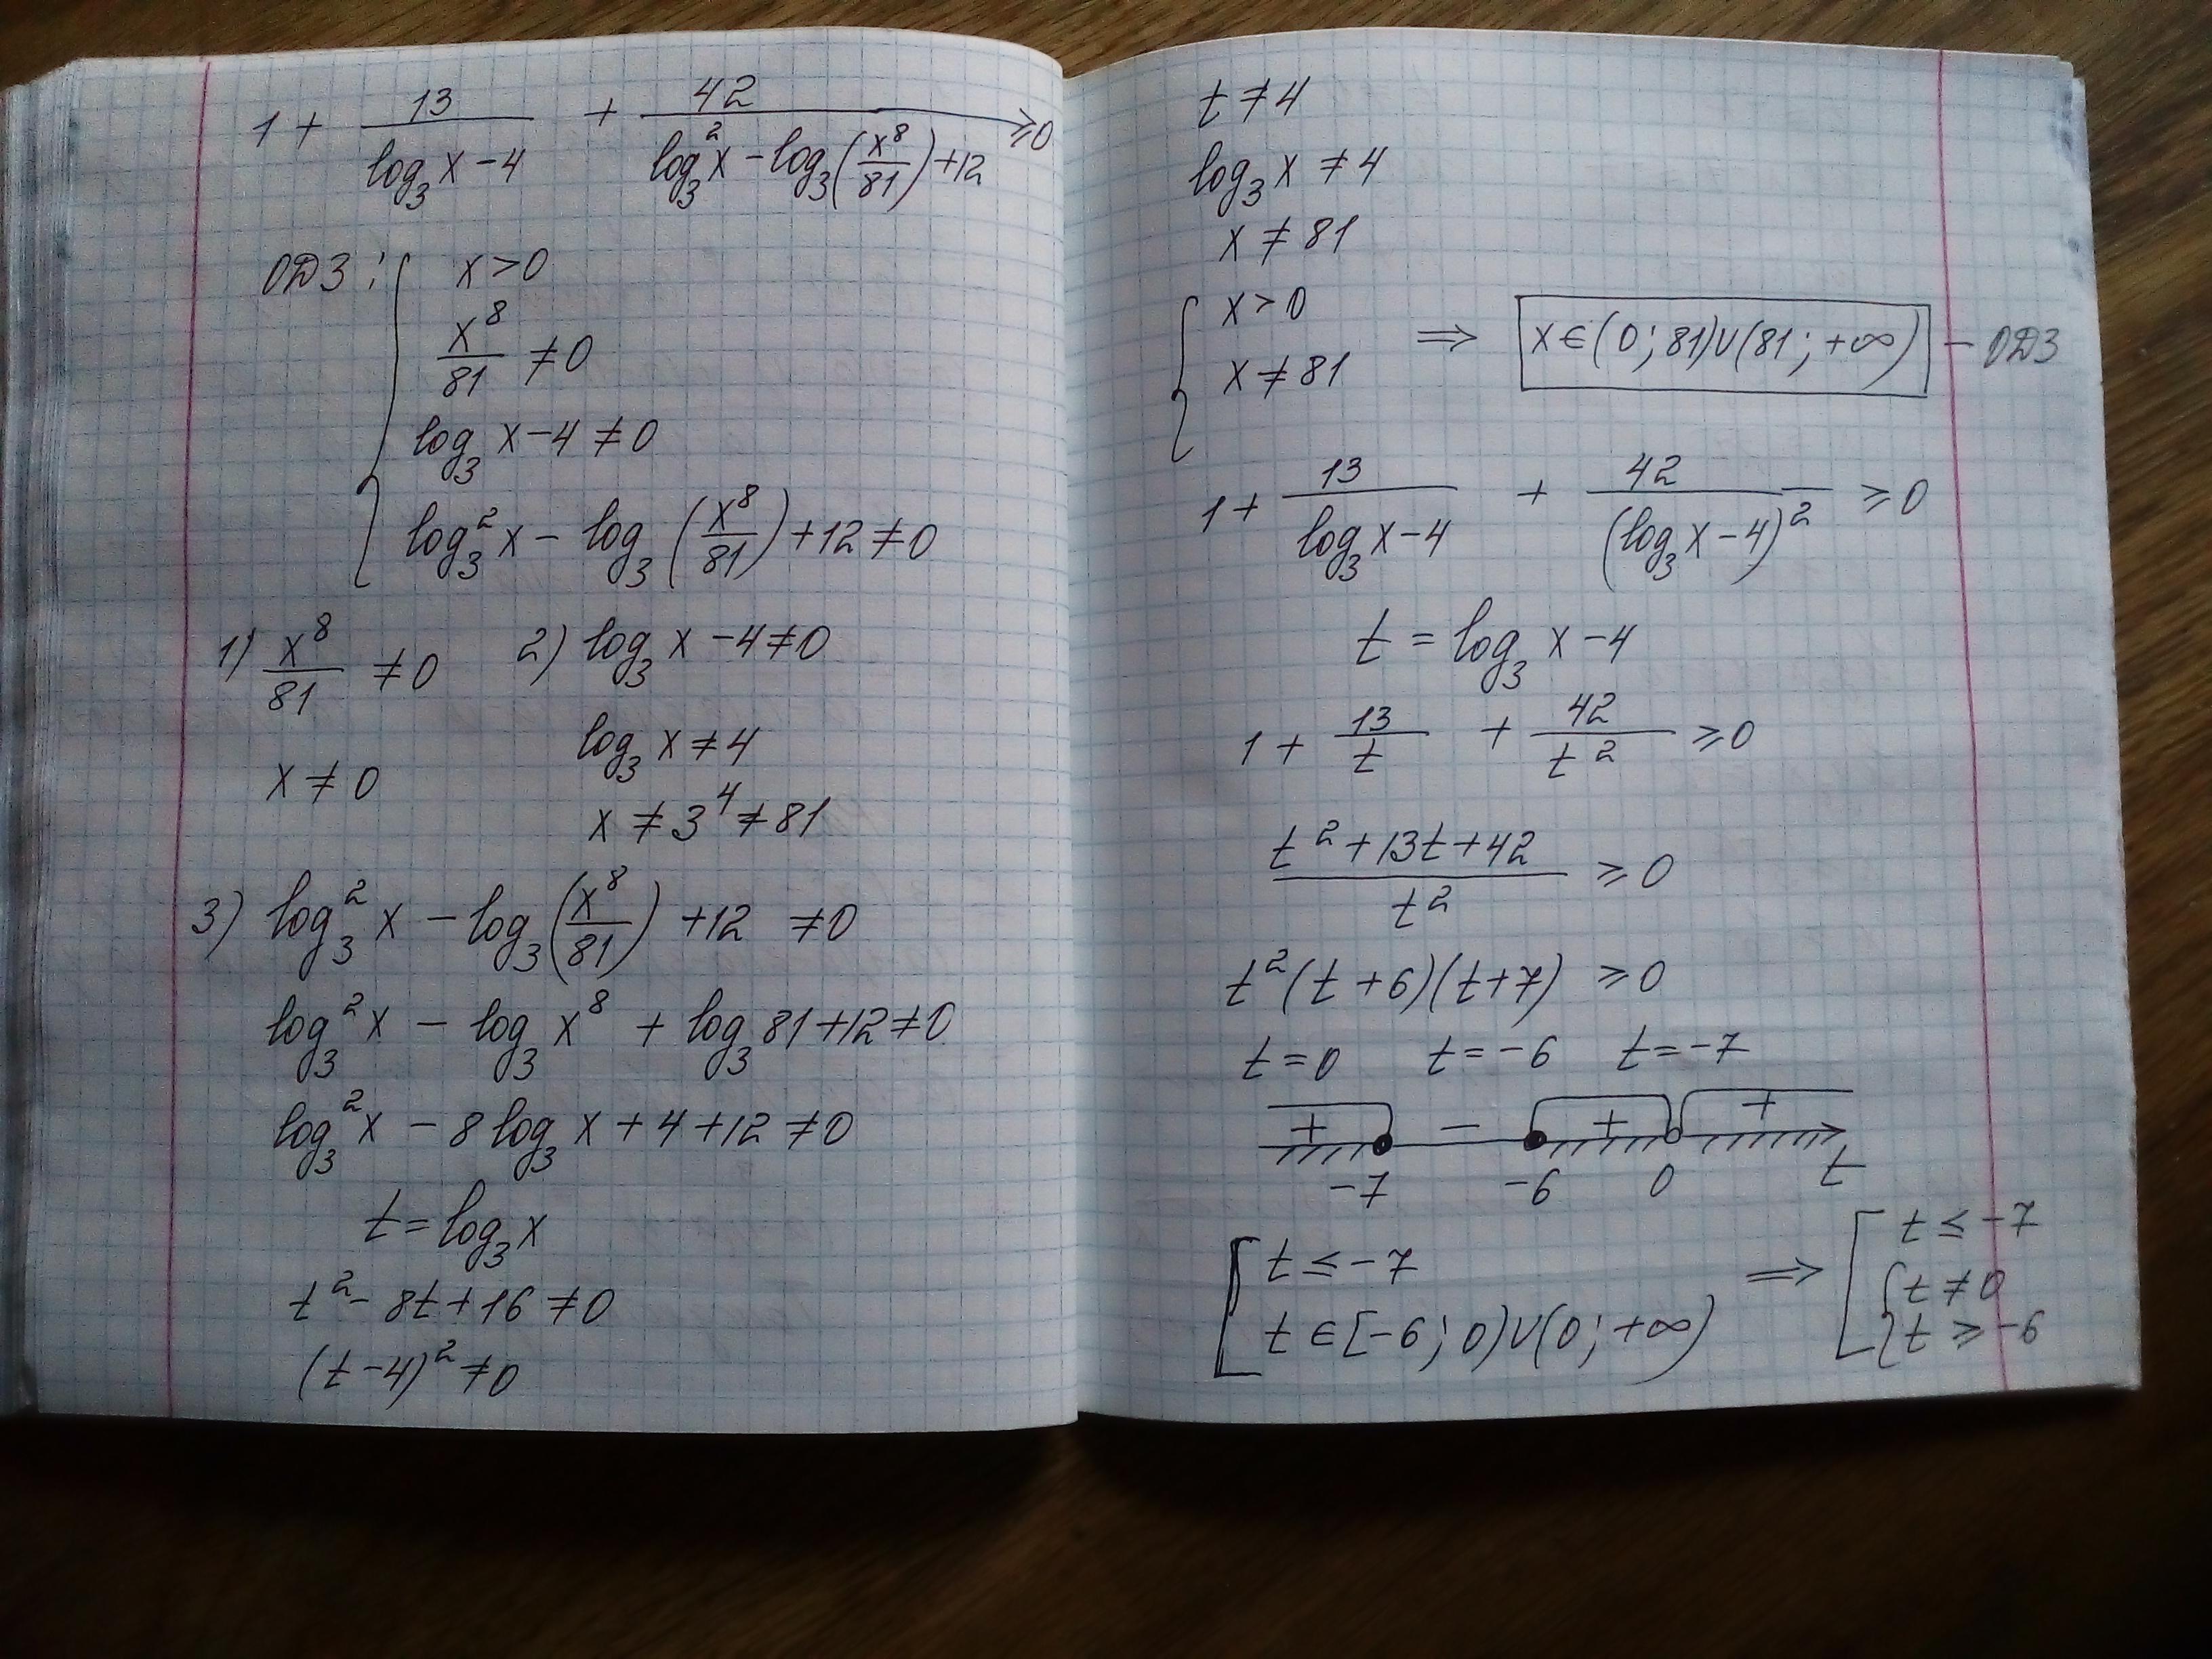 1 + 13/(log₃x − 4) + 42/(log₃²x − log₃(x⁸/81) + 12) ≥ 0
ОДЗ: { x > 0
x⁸/81 ≠ 0
log₃x − 4 ≠ 0
log₃²x − log₃(x⁸/81) + 12 ≠ 0
1) x⁸/81 ≠ 0 2) log₃x − 4 ≠ 0
x ≠ 0 log₃x ≠ 4
x ≠ 3⁴ ≠ 81
3) log₃²x − log₃(x⁸/81) + 12 ≠ 0
log₃²x − log₃x⁸ + log₃81 + 12 ≠ 0
log₃²x − 8log₃x + 4 + 12 ≠ 0
t = log₃x
t² − 8t + 16 ≠ 0
(t − 4)² ≠ 0
t ≠ 4
log₃x ≠ 4
x ≠ 81
{ x > 0
x ≠ 81 ⇒ x ∈ (0; 81)∪(81; +∞) − ОДЗ
1 + 13/(log₃x − 4) + 42/(log₃x − 4)² ≥ 0
t = log₃x − 4
1 + 13/t + 42/t² ≥ 0
(t² + 13t + 42)/t² ≥ 0
t²(t + 6)(t + 7) ≥ 0
t = 0 t = −6 t = −7
+ − + +
−7 −6 0 t
[ t ≤ −7
t ∈ [−6; 0)∪(0; +∞) ⇒ [ t ≤ −7
{ t ≠ 0
t ≥ −6